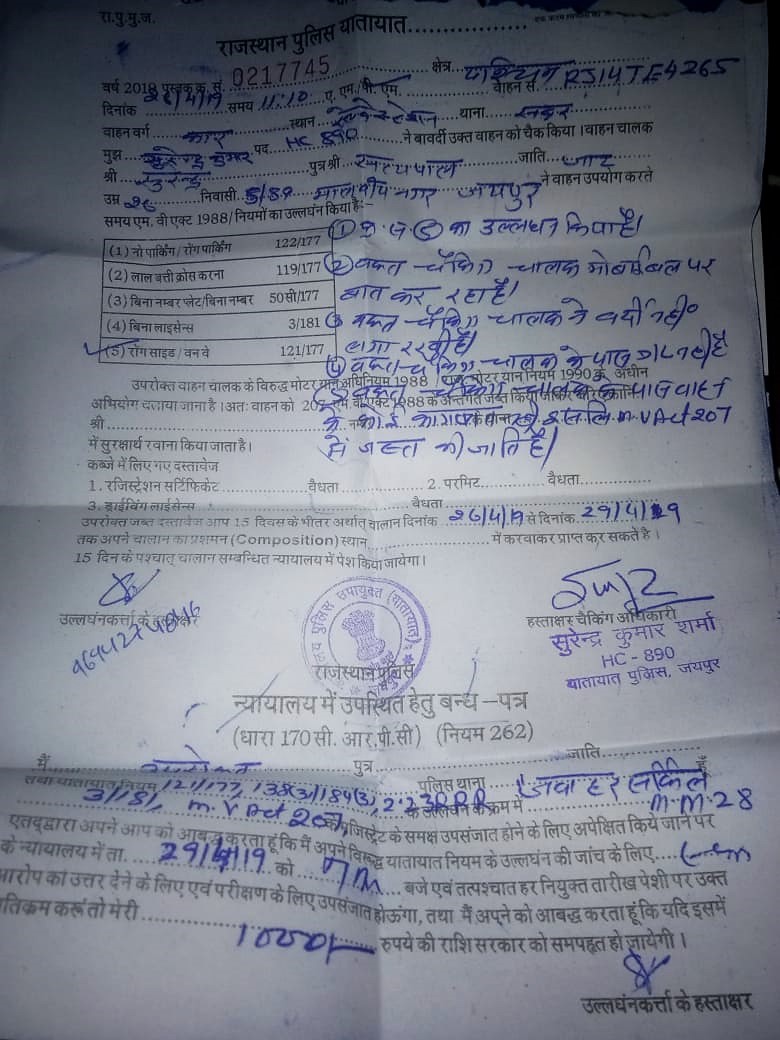 रा.पु.मु.ज.
राजस्थान पुलिस यातायात
वर्ष 2018 पुस्तक क्र. सं. 0217745 क्षेत्र पश्चिम वाहन सं. RJ14TE4265
दिनांक 26/4/19 समय 11:10 ए. एम./पी. एम.
वाहन वर्ग कार स्थान थाना सदर
मुझ सुरेन्द्र कुमार पद HC 890 ने बावर्दी उक्त वाहन को चैक किया। वाहन चालक
श्री सुरेन्द्र पुत्र श्री सत्यपाल जाति जाट
उम्र 26 निवासी 5/89 मालवीय नगर जयपुर ने वाहन उपयोग करते
समय एम. वी एक्ट 1988/ नियमों का उल्लघंन किया है:-
(1) नो पार्किंग / रोंग पार्किंग 122/177
(2) लाल बत्ती क्रोस करना 119/177
(3) बिना नम्बर प्लेट/बिना नम्बर 50सी/177
(4) बिना लाईसेन्स 3/181
(5) रोंग साइड / वन वे 121/177
① क्र. सं ⑤ का उल्लघन किया है।
② वक्त चैकिंग चालक मोबाईल पर
बात कर रहा है।
③ वक्त चैकिंग चालक ने वर्दी नहीं
लगा रखी है।
④ वक्त चैकिंग चालक के पास नहीं है
उपरोक्त वाहन चालक के विरुद्ध मोटर यान अधिनियम 1988 मोटर यान नियम 1990 के अधीन
अभियोग चलाया जाना है। अतः वाहन को 207 एम.वी. एक्ट 1988 के अन्तर्गत जब्त किया जाकर
के कोई कागजात M.V Act 207
में जब्त की जाति है।
श्री
में सुरक्षार्थ रवाना किया जाता है।
कब्जे में लिए गए दस्तावेज
1. रजिस्ट्रेशन सर्टिफिकेट वैधता 2. परमिट वैधता
3. ड्राईविंग लाईसेन्स वैधता
उपरोक्त जब्त दस्तावेज आप 15 दिवस के भीतर अर्थात् चालान दिनांक 26/4/19 से दिनांक 29/4/19
तक अपने चालान का प्रशमन (Composition) स्थान में करवाकर प्राप्त कर सकते है।
15 दिन के पश्चात् चालान सम्बन्धित न्यायालय में पेश किया जायेगा।
उल्लघंनकर्त्ता के हस्ताक्षर
हस्ताक्षर चैकिंग अधिकारी
सुरेन्द्र कुमार शर्मा
HC - 890
यातायात पुलिस, जयपुर
पुलिस उपायुक्त (यातायात)
राजस्थान पुलिस
न्यायालय में उपस्थित हेतु बन्ध –पत्र
(धारा 170 सी. आर.पी.सी) (नियम 262)
मैं उपरोक्त पुत्र जाति हूँ
तथा यातायात नियम 121/177, 138(3)/184(3), 2.23RRR पुलिस थाना जवाहर सर्किल
3/181, M.V Act 207 के उल्लंघन के क्रम में M.M. 28
मजिस्ट्रेट के समक्ष उपसंजात होने के लिए अपेक्षित किये जाने पर
एतद्द्वारा अपने आप को आबद्ध करता हूं कि मैं अपने विरूद्ध यातायात नियम के उल्लघंन की जांच के लिए
के न्यायालय में ता. 29/4/19 को बजे एवं तत्पश्चात हर नियुक्त तारीख पेशी पर उक्त
आरोप का उत्तर देने के लिए एवं परीक्षण के लिए उपसंजात होऊगा, तथा मैं अपने को आबद्ध करता हूं कि यदि इसमें
व्यतिक्रम करूं तो मेरी 1000/- रुपये की राशि सरकार को समपहृत हो जायेगी।
उल्लघंनकर्त्ता के हस्ताक्षर